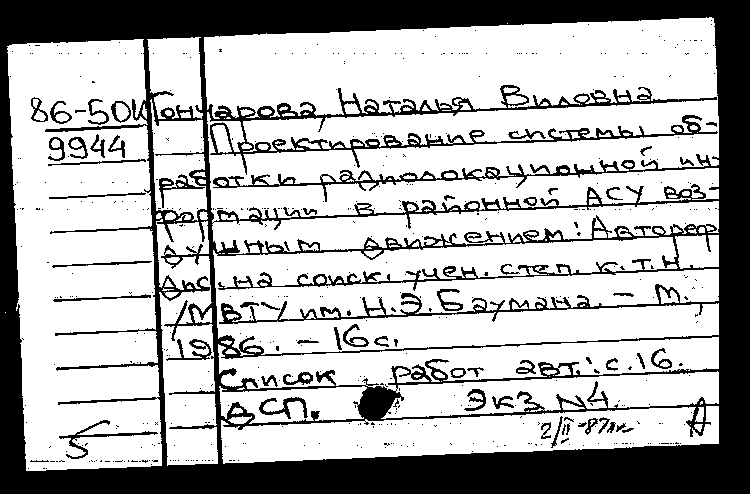 86-5ДК Гончарова, Наталья Виловна
9944 Проектирование системы об-
работки радиолокационной ин-
формации в районной АСУ воз-
душным движением: Автореф.
дис. на соиск. учен. степ. к.т.н.
/МВТУ им. Н.Э.Баумана. – М.,
1986. – 16с.
Список работ авт.: с.16.
ДСП. Экз N4.
2/II-87
5 А